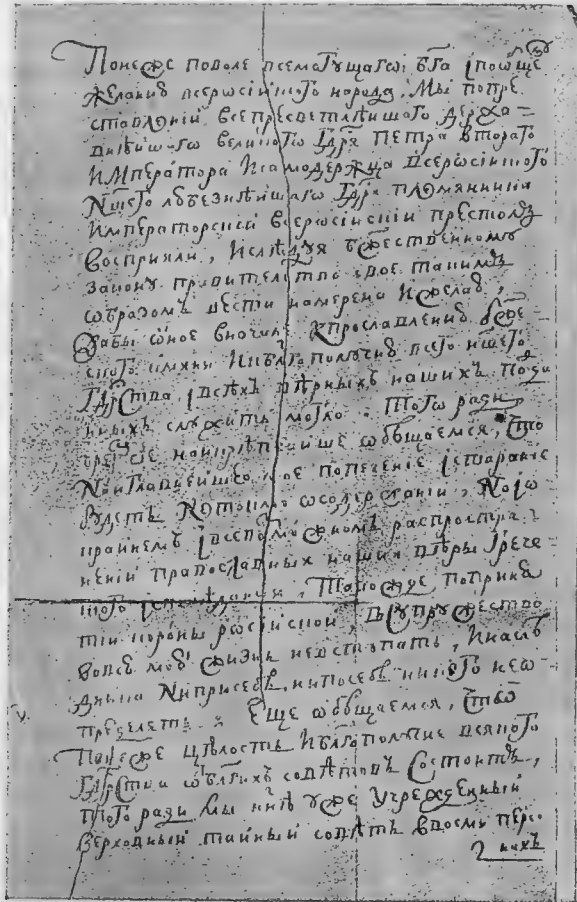 Понеже поволе всемогущаго бга і пообще
желанию всеросіиского народа, Мы попре
ставлениі всепресветлѣишаго держа=
внѣишаго великого гдря Петра втораго
императора и самодержца всеросіиского
Ншего любезнѣишаго гдря племянника
императорскиі всеросіискиі престолъ
восприяли, и следуя бжественному
закону правителство свое такимъ
ѡбразомъ вести намерена и желаю,
дабы оное вначале кпрославлению бже
ского имяни и кблгополучию всего ншего
гдрства, и всѣхъ вѣрныхъ наших подда
нныхъ служить могло. Того ради,
чрез сие наикрѣпчаише ѡбѣщаемся, что
Наиглавнеишее мое попечение и старание
будетъ не токмо ѡ содержаниі, но і ѡ
краинемъ і всевозможномъ распростра=
нениі православныя нашия вѣры грече
ского исповѣдания, такожде попри
тиі короны росіискоі, в супружество
вовсю мою жизнь не вступать, и наслѣ
дника ни при себѣ, ни по себѣ никого не ѡ=
пределять. Еще ѡбѣщаемся, что
понеже цѣлость и блгополучие всякого
гдрства ѡ блгихъ совѣтовъ состоитъ,
того ради мы ннѣ уже учрежденныі
верховныі таиныі совѣтъ в восми персо
нахъ